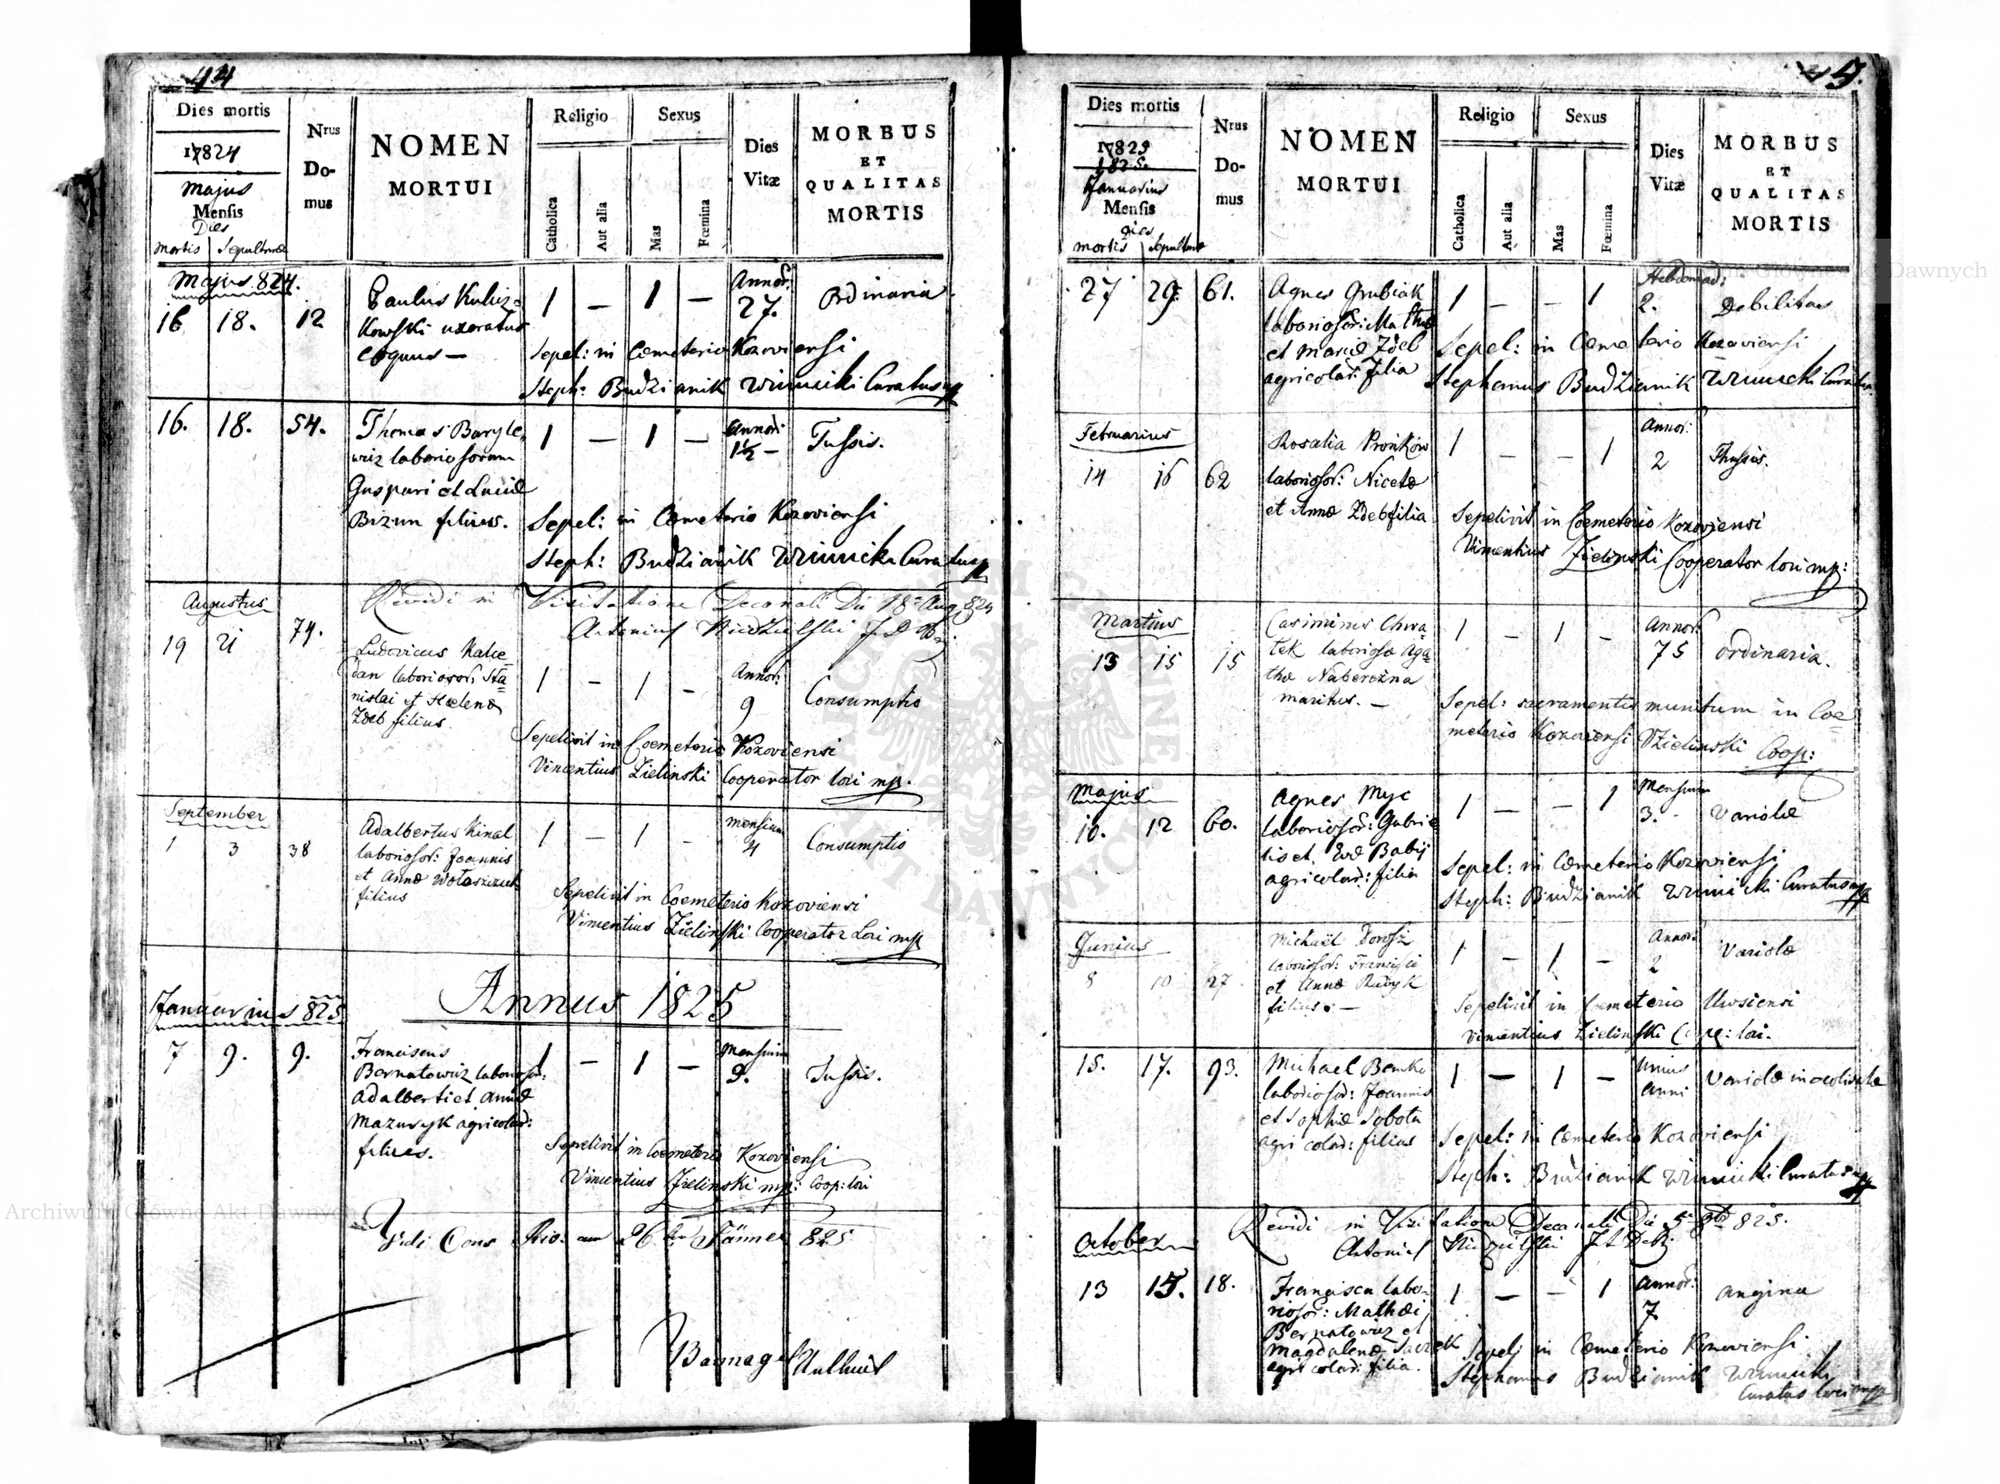 44
Dies mortis
Nrus Domus
NOMEN MORTUI
Religio
Catholica
Aut alia
Sexus
Mas
Fœmina
Dies Vitæ
MORBUS ET QUALITAS MORTIS
17824
Majus
Mensis
Dies
mortis Sepulturæ
Majus 824.
16 18. 12
Paulus Kulikowski uxoratus
1 – 1 –
Annor: 27.
Ordinaria
Sepel: in Cœmeterio Kozoviensi
Steph: Budzianik Winnicki Curatus mp
16. 18. 54.
Thomas Baryle-
wicz laboriosorum
Gaspari et Luciæ
Bizun filius.
1 – 1 –
Annor: 1½ –
Tussis.
Sepel: in Cœmeterio Kozoviensi
Steph: Budzianik Winnicki Curatus mp
Augustus
Revidi in Visitatione Decanali Die 18 Aug 824
19 21 74.
Ludovicus
laboriosor: Sta-
nislai et Helenæ
Zdeb filius.
1 – 1 –
Annor: 9
Consumptio
Sepelivit in Coemeterio Kozoviensi
Vincentius Zielinski Cooperator loci mp.
September
1 3 38
Adalbertus Kinal
laboriosor: Joannis
et Annæ Wołoszczuk
filius
1 – 1 –
mensium 4
Consumptio
Sepelivit in Coemeterio Kozoviensi
Vincentius Zielinski Cooperator Loci mp
Annus 1825
Januarius 825
7 9. 9.
Franciscus
Bernatowicz laborior:
Adalberti et Annæ
Mazuryk agricolar:
filius.
1 – 1 –
Mensium 9.
Tussis.
Sepelivit in Coemeterio Kozoviensi
Vincentius Zielinski mp: Coop: loci
Vidi Jänner 825
45.
Dies mortis
Nrus Domus
NOMEN MORTUI
Religio
Catholica
Aut alia
Sexus
Mas
Fœmina
Dies Vitæ
MORBUS ET QUALITAS MORTIS
1825.
Januarius
Mensis
dies
mortis Sepulturæ
27 29. 61.
Agnes Grubiak
laboriosor: Mathæi
et Mariæ Zdeb
agricolar: filia
1 – – 1
Hebdomad: 2.
Debilitas
Sepel: in Cœmeterio Kozoviensi
Stephanus Budzianik Winnicki Curatus
Februarius
14 16 62
Rosalia Pronków
laboriosor: Nicetæ
et Annæ Zdeb filia
1 – – 1
Annor: 2
Thussis.
Sepelivit in Coemeterio Kozoviensi
Vincentius Zielinski Cooperator loci mp:
Martius
13 15 15
Casimirus Chwa-
tek laboriosæ Aga-
thæ Naberezna
maritus. –
1 – 1 –
Annor: 75
ordinaria.
Sepel: sacramentis munitum in Coe-
meterio Kozoviensi VZielinski Coop:
Majus
10. 12 60.
Agnes Myc
laboriosor: Gabrie-
lis et Evæ Babij
agricolar: filia
1 – – 1
Mensium 3.
Variolæ
Sepel: in Cœmeterio Kozoviensi
Steph: Budzianik Winnicki Curatus mp
Junius
8 10 27
Michaël Dorosz
laboriosor: Francisci
et Annæ
filius: –
1 – 1 –
Annor: 2
Variolæ
Sepelivit in Coemeterio Uwsiensi
Vincentius Zielinski Coop: loci.
15. 17. 93.
Michael Bemko
laboriosor: Joannis
et Sophiæ Sobota
agricolar: filius
1 – 1 –
Unius anni
Variolæ
Sepel: in Cœmeterio Kozoviensi
Steph: Budzianik Winnicki Curatus mp
Revidi in Visitatione Decanali Die 5 825.
October
13 15. 18.
Francisca labo-
riosor: Mathæi
Bernatowicz et
Magdalenæ
agricolar: filia.
1 – – 1
Annor: 7
angina
Sepel: in Cœmeterio Kozoviensi
Stephanus Budzianik Winnicki
Curatus loci mp
Archiwum Główne Akt Dawnych
Archiwum Główne Akt Dawnych
ARCHIWUM GŁÓWNE AKT DAWNYCH